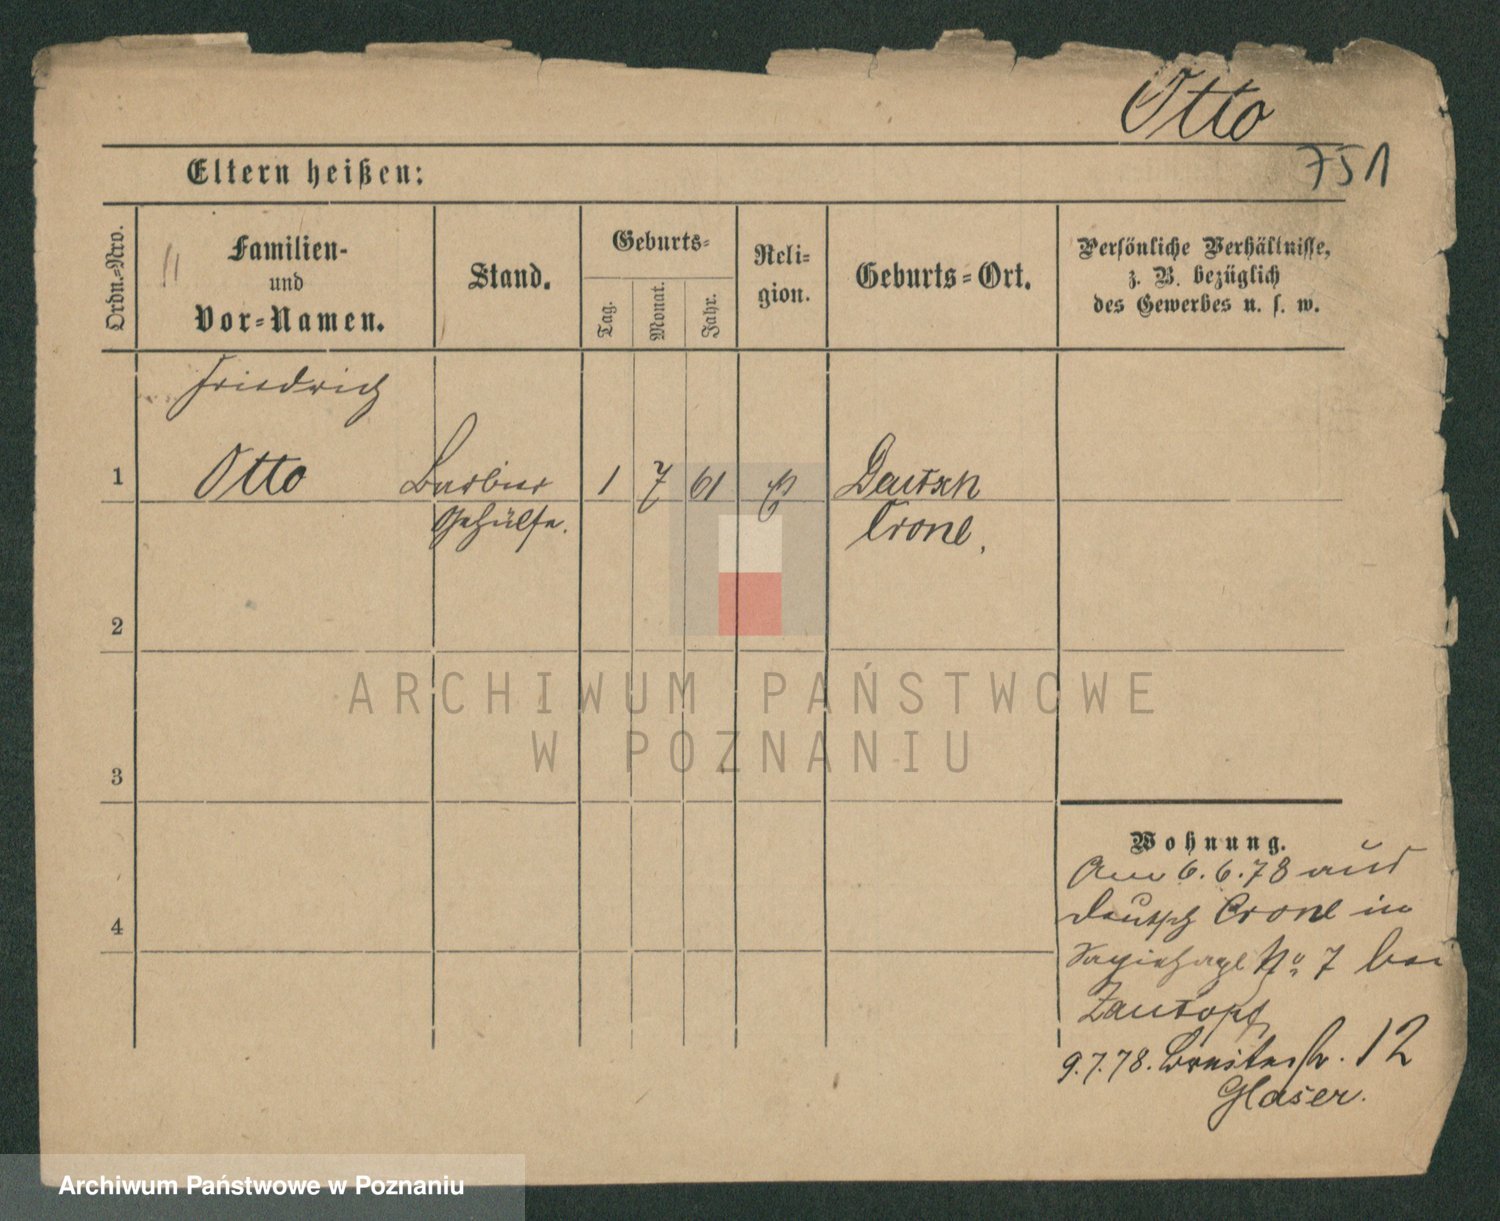 Otto
751
Eltern heißen:
Ordn.-Nro.
Familien-
und
Vor-Namen.
Stand.
Geburts-
Tag.
Monat.
Jahr.
Reli-
gion.
Geburts-Ort.
Persönliche Verhältnisse,
z. B. bezüglich
des Gewerbes u. s. w.
Friedrich
1 Otto Barbier 1 7 61 Deutsch
Gehülfe. Crone.
2
ARCHIWUM PAŃSTWOWE
W POZNANIU
3
Wohnung.
Am 6.6.78 aus
4 Deutsch Crone in
No 7 bei
9.7.78. 12
Glaser.
Archiwum Państwowe w Poznaniu